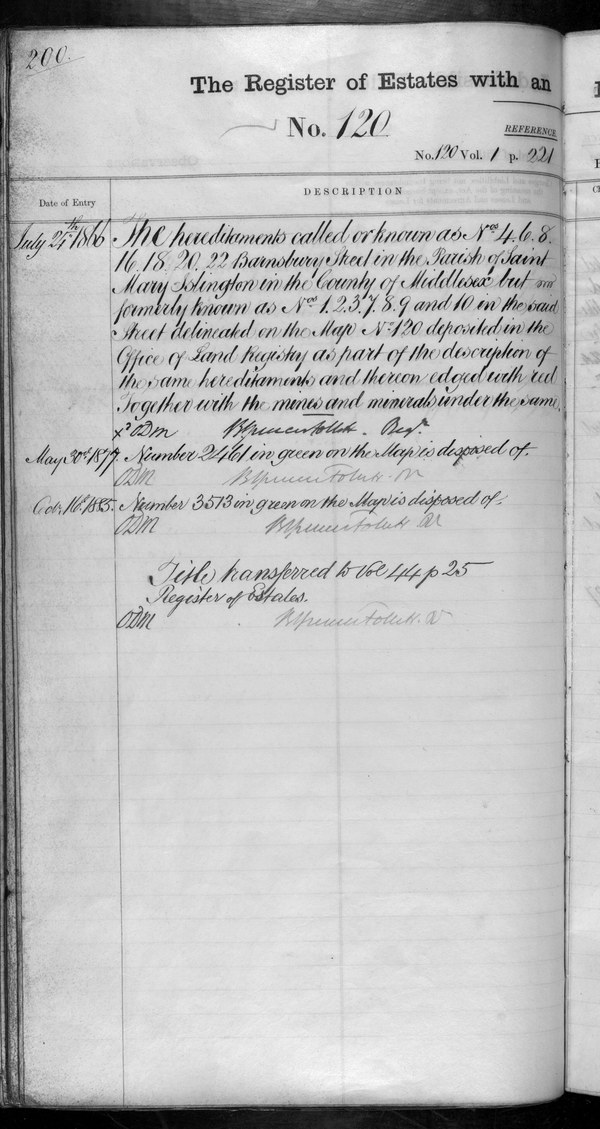 200.
The Register of Estates with an
No. 120
REFERENCE.
No. 120 Vol. 1 p. 221
Date of Entry
DESCRIPTION
July 24th 1866 The hereditaments called or known as Nos. 4. 6. 8.
16. 18. 20. 22 Barnsbury Street in the Parish of Saint
Mary Islington in the County of Middlesex but
formerly known as Nos. 1. 2. 3. 7. 8. 9 and 10 in the said
Street delineated on the Map No. 120 deposited in the
Office of Land Registry as part of the description of
the same hereditaments and thereon edged with red
Together with the mines and minerals under the same.
ODM BSpencerFollett. Regr.
May 30th 1877. Number 2461 in green on the Map is disposed of.
ODM BSpencerFollett.
Octr. 16th 1885. Number 3513 in green on the Map is disposed of.
ODM BSpencerFollett
Title transferred to Vol 44 p 25
Register of Estates.
ODM BSpencerFollett.